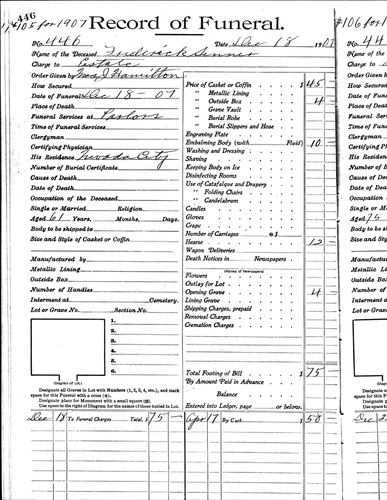 446
#105 for 1907
Record of Funeral.
No. 446 Date Dec 18 1907
Name of the Deceased Frederick
Charge to Estate
Order Given by Hamilton
How Secured
Date of Funeral Dec 18 - 07
Place of Death
Funeral Services at Parlors
Time of Funeral Services
Clergyman
Certifying Physician
His Residence Nevada City
Number of Burial Certificate
Cause of Death
Date of Death
Occupation of the Deceased
Single or Married, Religion
Aged 61 Years, Months, Days.
Body to be shipped to
Size and Style of Casket or Coffin
Manufactured by
Metallic Lining
Outside Box
Number of Handles
Interment at Cemetery.
Lot or Grave No. Section No.
1.
2.
3.
4.
5.
6.
(Diagram of Lot.)
Designate all Graves in Lot with Numbers (1, 2, 3, 4, etc.), and mark
space for this Funeral with a cross (+).
Designate place for Monument with a small square (□).
Use space to the right of Diagram for the names of those buried in Lot.
Dec 18 To Funeral Charges Total, $ 75 -
Price of Casket or Coffin $ 45 -
" Metallic Lining
" Outside Box 4
" Grave Vault
" Burial Robe
" Burial Slippers and Hose
Engraving Plate
Embalming Body (with Fluid) 10 -
Washing and Dressing
Shaving
Keeping Body on Ice
Disinfecting Rooms
Use of Catafalque and Drapery
" Folding Chairs
" Candelabrum
Candles
Gloves
Crape
Number of Carriages @ $
Hearse 12 -
Wagon Deliveries
Death Notices in Newspapers
(Names of Newspapers)
Flowers
Outlay for Lot
Opening Grave 4 -
Lining Grave
Shipping Charges, prepaid
Removal Charges
Cremation Charges
Total Footing of Bill $ 75
By Amount Paid in Advance
Balance
Entered into Ledger, page or below.
Apr 17 By Cash $ 50
#106 for
No. 44
Name of the
Charge to
Order Given
How Secured
Date of Funeral
Place of Death
Funeral Services
Time of Funeral
Clergyman
Certifying Ph
His Residence
Number of Bu
Cause of Death
Date of Death
Occupation of
Single or Mar
Aged 75
Body to be shi
Size and Style
Manufactured
Metallic Lining
Outside Box
Number of Ha
Interment at
Lot or Grave N
(Diagram
Designate all G
space for this Fune
Designate plac
Use space to the r
Dec 2